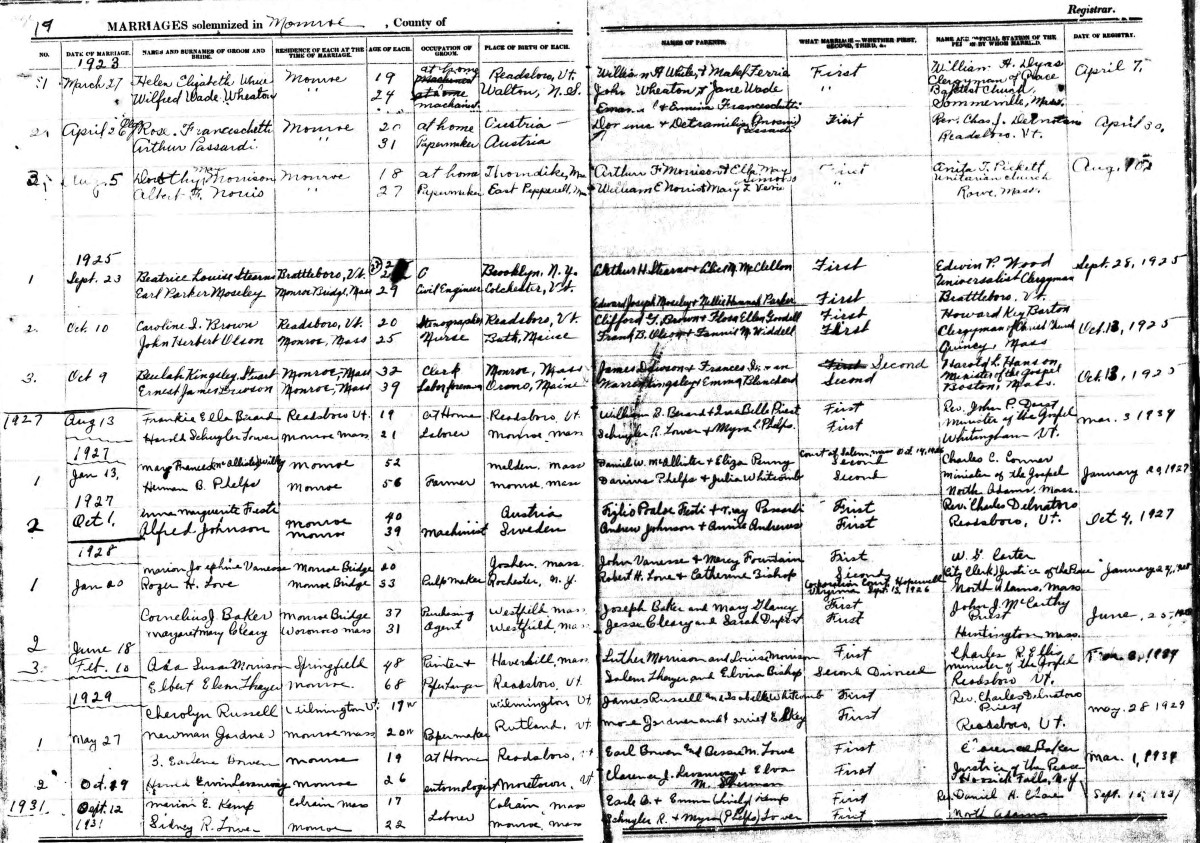 19 MARRIAGES solemnized in Monroe, County of
Registrar.
NO. DATE OF MARRIAGE. NAMES AND SURNAMES OF GROOM AND BRIDE. RESIDENCE OF EACH AT THE TIME OF MARRIAGE. AGE OF EACH. OCCUPATION OF GROOM. PLACE OF BIRTH OF EACH. NAMES OF PARENTS. WHAT MARRIAGE—WHETHER FIRST, SECOND, THIRD, &c. NAME AND OFFICIAL STATION OF THE BY WHOM MARRIED. DATE OF REGISTRY.
1923
1 March 27 Helen Elizabeth White Monroe 19 at home Readsboro, Vt. William A White & Mabel Ferris First William A. Dyas April 7,
Wilfred Wade Wheaton " 24 machinist Walton, N.S. John Wheaton & Jane Wade " Clergyman of Grace
Baptist Church
Sommerville, Mass.
2 April 26 Rose Franceschetti Monroe 20 at home Austria First Rev. Chas. J. April 30,
Arthur Passardi " 31 Papermaker Austria Readsboro, Vt.
3, Aug 5 Dorothy Morrison Monroe 18 at home Thorndike, Arthur F Morrison & Effa May First Anita T. Pickett Aug
Albert F. Norris " 27 Papermaker East Pepperell, William E Norris & Mary " Unitarian Church
Rowe, Mass.
1925
1 Sept. 23 Beatrice Louise Stearns Brattleboro, Vt. Brooklyn, N.Y. Arthur H. Stearns & Alice M. McClellon First Edwin P. Wood Sept. 28, 1925
Earl Parker Moseley Monroe Bridge, Mass 29 Civil Engineer Colchester, Vt. Universalist Clergyman
Edward Joseph Moseley & Nellie Hannah Parker First Brattleboro, Vt.
2. Oct. 10 Caroline I. Brown Readsboro, Vt. 20 Stenographer Readsboro, Vt. Clifford G. Brown & Flora Ellen Goodell First Howard Key Barton
John Herbert Olson Monroe, Mass 25 Nurse Bath, Maine Frank B. Olson & Fannie M. Widdell First Clergyman Oct. 13, 1925
Quincy, Mass
3. Oct 9 Beulah Kingsley Stuart Monroe, Mass 32 Clerk Monroe, Mass James & Frances First Second Harold L. Hanson
Ernest James Monroe, Mass 39 Labor foreman Orono, Maine Warren Kingsley & Emma Blanchard Second Minister of the gospel Oct. 13, 1925
Boston, Mass.
1927 Aug 13 Frankie Ella Berard Readsboro Vt. 19 At Home Readsboro, Vt. William D. Berard & Iva Belle Priest First Rev. John P. Mar. 3 1934
Harold Schuyler Lower Monroe Mass 21 Laborer Monroe Mass Schuyler R. Lower & Myra C. Phelps First Minister of the Gospel
Whitingham Vt.
1927
1 Jan 13, Mary Frances McAllister Monroe 52 Malden, Mass Daniel W. McAllister & Eliza Penny Court of Salem, Mass Oct 14, Second Charles C. Conner
Herman B. Phelps Monroe 56 Farmer Monroe, Mass Darius Phelps & Julia Whitcomb Second Minister of the Gospel January 29, 1927
North Adams, Mass.
1927
2 Oct 1. Emma Marguerite Festi Monroe 40 Austria First Rev. Charles Delnatoro
Alfred Johnson Monroe 39 Machinist Sweden Andrew Johnson & Annie Andrews First Readsboro, Vt. Oct 4, 1927
1928
1 Jan 20 Marion Josephine Vanesse Monroe Bridge 20 Goshen, Mass. John Vanesse & Mercy Fountain First W. G. Carter
Roger H. Love Monroe Bridge 33 Pulp maker Rochester, N.Y. Robert H. Love & Catherine Bishop Second City Clerk Justice of the Peace January 24,
Corporation Court, Hopewell Virginia Sept. 13, 1926 North Adams, Mass
2 June 18 Cornelius J. Baker Monroe Bridge 37 Purchasing Westfield Mass Joseph Baker and Mary Glancy First John J. McCarthy
Margaret Mary Cleary Woronoco Mass 31 Agent Westfield, Jesse Cleary and Sarah First Priest June 25,
Huntington Mass.
3. Feb. 10 Ada Susan Morrison Springfield 48 Painter & Haverhill, Mass Luther Morrison and Louise Morrison First Charles R. Ellis
Elbert Elson Thayer Monroe. 68 Paper hanger Readsboro, Vt. Salem Thayer and Elvira Bishop Second Divorced Minister of the Gospel
Readsboro Vt.
1929
1 May 27 Cherolyn Russell Wilmington 19 Wilmington Vt James Russell and Isabelle Whitcomb First Rev. Charles Delnatoro
Newman Gardner Monroe Mass 20 Papermaker Rutland, Vt First Priest May 28 1929
Readsboro, Vt.
2 Oct. 19 Z. Earlene Bowen Monroe 19 At Home Readsboro, Earl Bowen and Bessie M. Lowe First Clarence Baker Mar. 1, 1934
Monroe 26 entomologist Moretown, Vt Clarence J. & Elva M. Sherman First Justice of the Peace
Hoosick Falls, N.Y
1931 Sept. 12 Marion E. Kemp Colrain Mass 17 Colrain Mass Earle A. & Emma (Child) Kemp First Rev. Daniel H. Sept. 15, 1931
1931 Sidney R. Lower Monroe 22 Laborer Monroe, Mass Schuyler R. & Myra (Phelps) Lower First North Adams